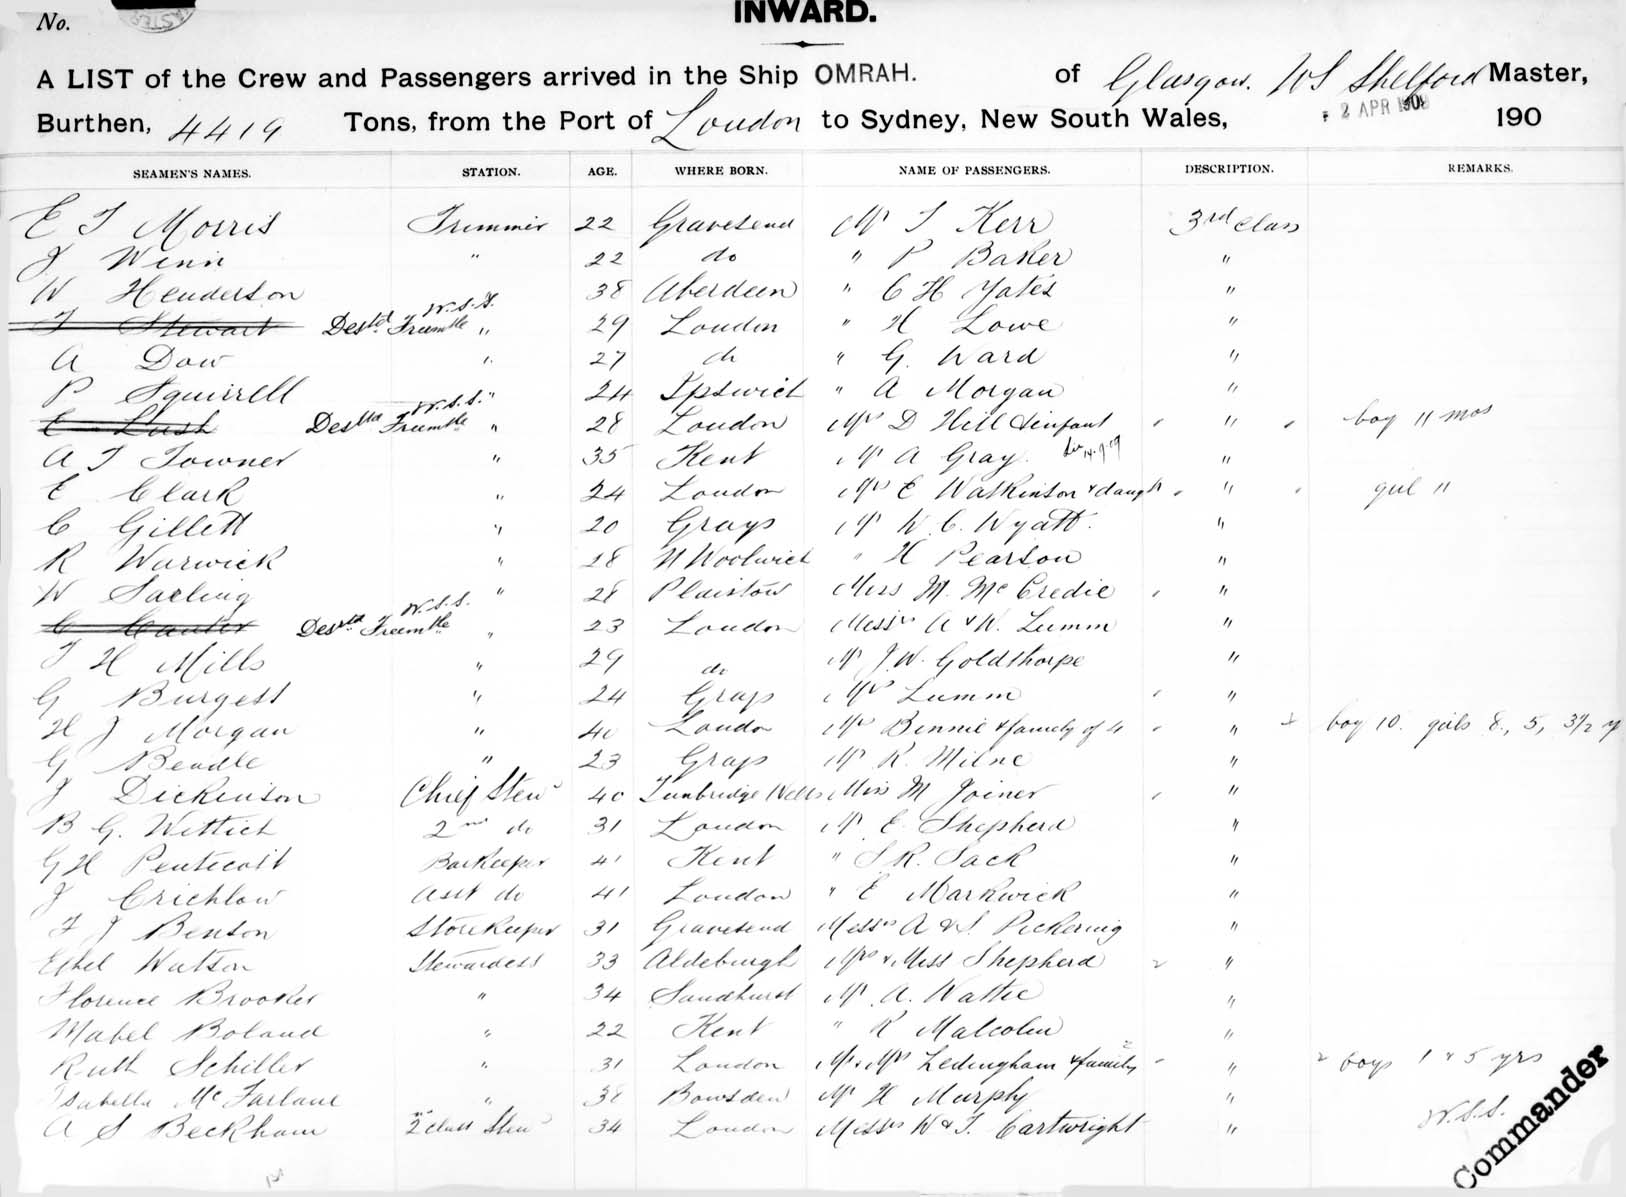 No.
INWARD.
A LIST of the Crew and Passengers arrived in the Ship OMRAH. of Glasgow. W S Shelford Master,
Burthen, 4419 Tons, from the Port of London to Sydney, New South Wales, 2 APR 190
SEAMEN'S NAMES. STATION. AGE. WHERE BORN. NAME OF PASSENGERS. DESCRIPTION. REMARKS.
E T Morris Trimmer 22 Gravesend Mr T Kerr 3rd Class
J Winn " 22 do " P Baker "
W Henderson 38 Aberdeen " C H Yates "
T Stewart Desttd Freemtle W.S.S. " 29 London " H Lowe "
A Dow " 27 do " G. Ward "
P Squirrell " 24 Ipswich " A Morgan "
E Lush Desttd Freemtle W.S.S. " 28 London Mrs D Hill & infant " boy 11 mos
A T Towner " 35 Kent Mr A Gray. "
E Clark " 24 London Mrs E Watkinson & daugh " girl 11
C Gillett " 20 Grays Mr W. C. Wyatt. "
R Warwick " 28 N Woolwich " H Pearson "
W Sarling " 28 Plaistow Miss M. McCredie "
C Canter Desttd Freemtle W.S.S. " 23 London Messrs A & W. Lumm "
T H Mills " 29 do Mr J. W. Goldthorpe "
G Burgess " 24 Grays Mrs Lumm "
H J Morgan " 40 London Mrs Bennie & family of 4 " boy 10. girls 8., 5, 3½ y
G Beadle " 23 Grays Mr R. Milne "
J Dickenson Chief Stew 40 Tunbridge Wells Miss M Joiner "
B G. Wittich 2nd do 31 London Mr E. Shepherd "
G H Pentecost Barkeeper 41 Kent " S. R. Sack "
J Crichlow Asst do 41 London " E Markwick "
F J Benson Storekeeper 31 Gravesend Messrs A & S. Pickering "
Ethel Watson Stewardess 33 Aldeburgh Mrs & Miss Shepherd "
Florence Brooker " 34 Sandhurst Mr A. Wattie "
Mabel Boland " 22 Kent " R Malcolm "
Ruth Schiller " 31 London Mr & Mrs Ledingham & family 2 " 2 boys 1 & 5 yrs
Isabella McFarlane " 38 Bowsden Mr H Murphy "
A S Beckham 2nd class Stew 34 London Messrs W & T. Cartwright "
W.S.S.
Commander